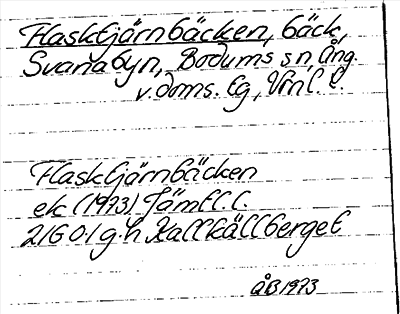 Flasktjärnbäcken, bäck,
Svanabyn, Bodums sn, Ång.
v. doms. tg, Vnl. l.
Flasktjärnbäcken
ek (1973) Jämtl. l.
21G 0-1 g-h Kallkällberget
ÅB 1973